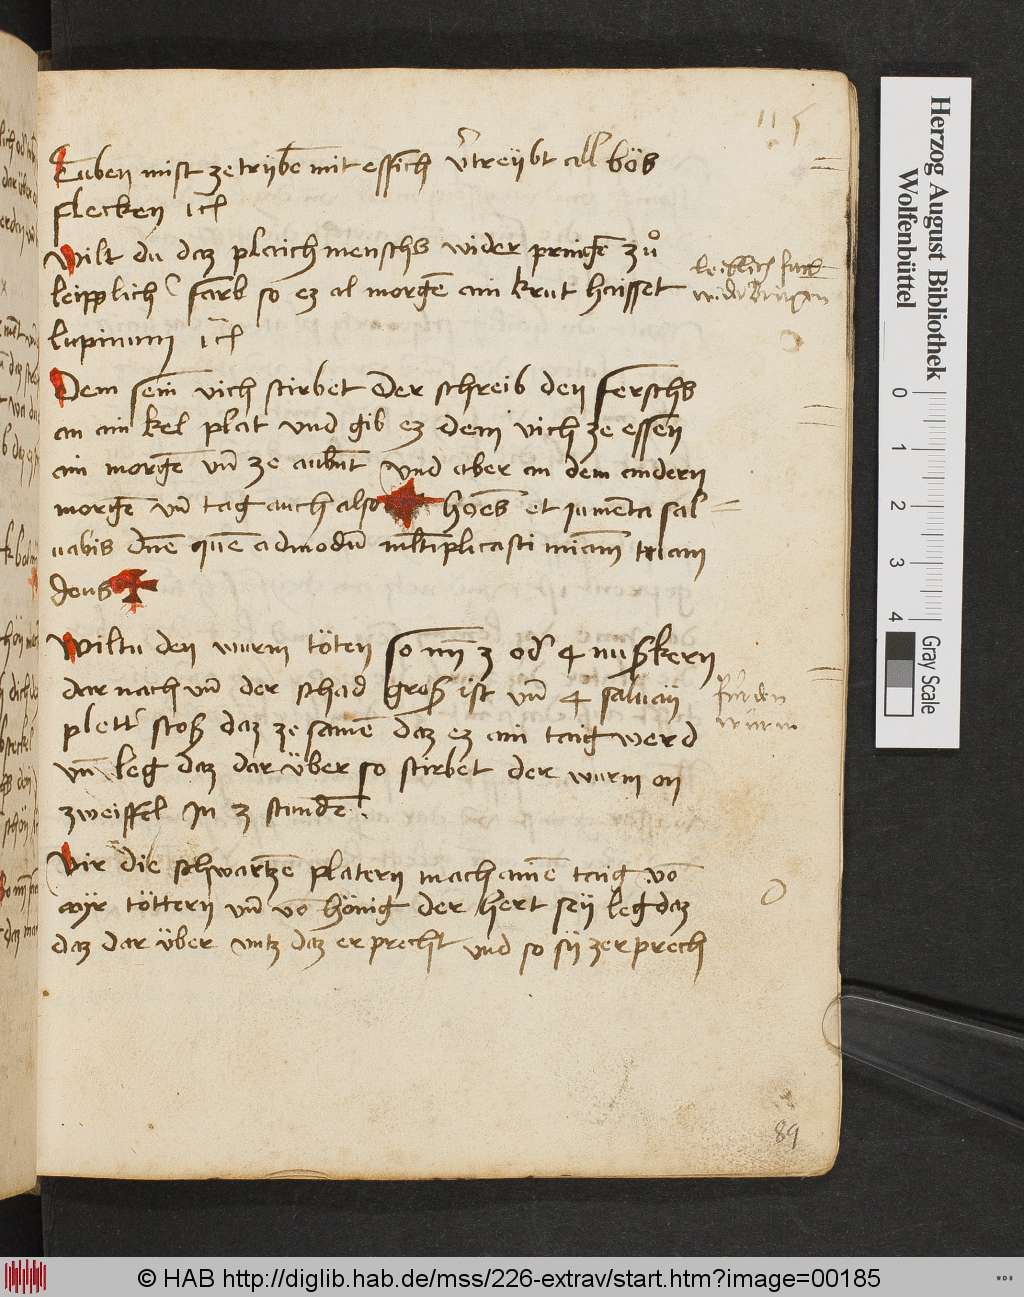 115
Tuben mist ze trybē mit essich v̄treÿbt all bös
flecken icl
Wilt du daz plaich menschs wider pringē zů
leipplichʼ farb so ez al morgē ain krut haisset
lupinum icl
Dem sein vich stirbet der schreib den ferschs
an ain kel plat vnd gib ez dem vich ze essen
ain morgē vn̄ ze aubn̄t vnd aber an dem andern
morgē vn̄ tag auch also ✚ hoēs et iumēta sal
uabis dn̄e quē admodū ml̄tiplicasti miām tuam
deus ✚
Wiltu den wurm töten so nym 3 odʼ 4 nuß kern
dar nach vn̄ der schad groß ist vn̄ 4 saluaÿ
plettʼ stoß daz ze samē daz ez ain taig werd
vn̄ leg daz dar über so stirbet der wurm on
zweiffel in 3 stundē
Vir die schwartzē platern mach ainē taig vō
ayr töttern vn̄ vō hönig der hert seÿ leg daz
daz dar über vntz daz er precht vnd so sÿ zerprech
leiblich farb
wider bringen
für den
wurm
89
Herzog August Bibliothek
Wolfenbüttel
0 1 2 3 4
Gray Scale
© HAB http://diglib.hab.de/mss/226-extrav/start.htm?image=00185